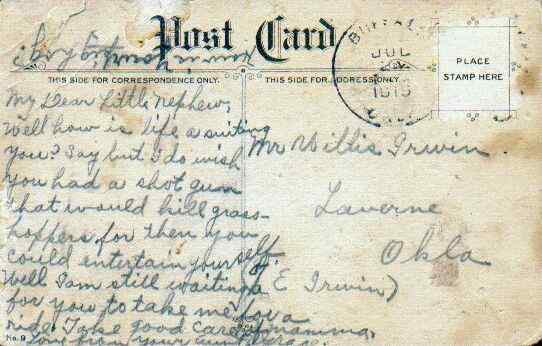 Post Card
THIS SIDE FOR CORRESPONDENCE ONLY.
THIS SIDE FOR ADDRESS ONLY.
PLACE
STAMP HERE
JUL
My Dear Little Nephew,
Well how is life a suiting
you? Say but I do wish
you had a shot gun
that would kill grass-
hoppers for then you
could entertain yourself.
Well I am still waiting
for you to take me for a
ride. Take good care of mamma,
Love from your aunt
Mr Willis Irwin.
Laverne
Okla
E Irwin)
No. 9